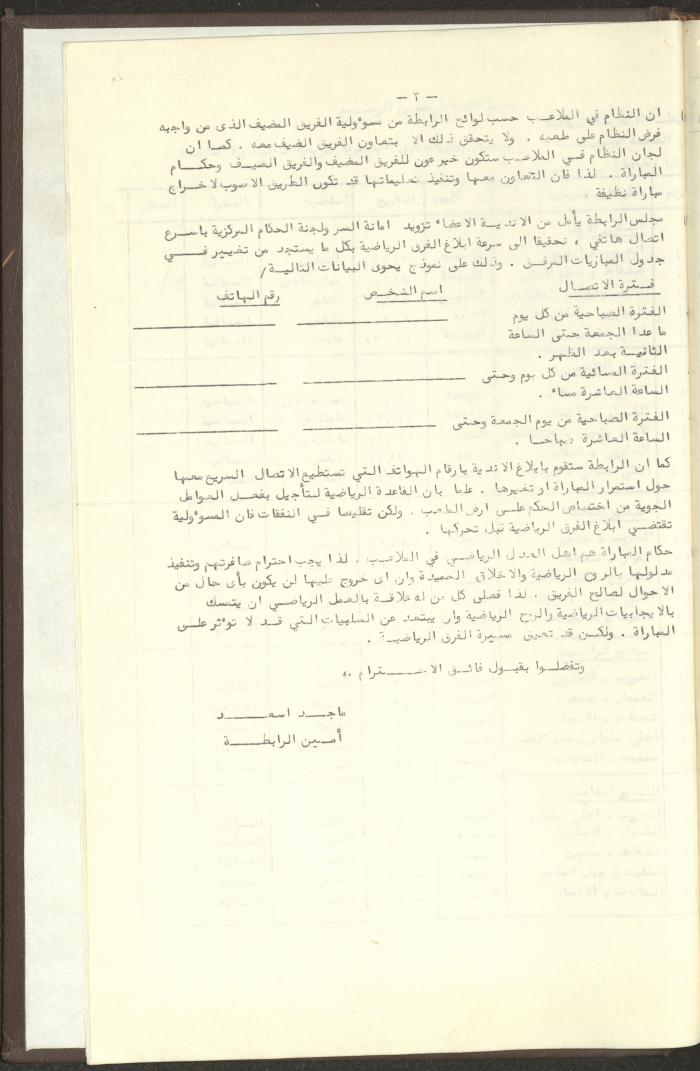 — ٢ —
ان النظام في الملاعب حسب لوائح الرابطة من مسوءولية الفريق المضيف الذى من واجبه
فرض النظام على ملعبه . ولا يتحقق ذلك الا بتعاون الفريق الضيف معه . كما ان
لجان النظام في الملاعب ستكون خير عون للفريق المضيف والفريق الضيف وحكام
المباراة . لذا فان التعاون معها وتنفيذ تعليماتها قد تكون الطريق الاصوب لاخراج
مباراة نظيفة .
مجلس الرابطة يأمل من الاندية الاعضاء تزويد امانة السر ولجنة الحكام المركزية باسرع
اتصال هاتفي ، تحقيقا الى سرعة ابلاغ الفرق الرياضية بكل ما يستجد من تغيير في
جدول المباريات المرفق . وذلك على نموذج يحوى البيانات التالية /
فترة الاتصال اسم الشخص رقم الهاتف
الفترة الصباحية من كل يوم
ما عدا الجمعة حتى الساعة
الثانية بعد الظهر .
الفترة المسائية من كل يوم وحتى
الساعة العاشرة مساء .
الفترة الصباحية من يوم الجمعة وحتى
الساعة العاشرة صباحا .
كما ان الرابطة ستقوم بابلاغ الاندية بارقام الهواتف التي تستطيع الاتصال السريع معها
حول استمرار المباراة او تغيرها . علما بان القاعدة الرياضية لتأجيل بفعل العوامل
الجوية من اختصاص الحكم على ارض الملعب . ولكن تقليصا في النفقات فان المسوءولية
تقتضي ابلاغ الفرق الرياضية قبل تحركها .
حكام المباراة هم اهل العدل الرياضي في الملاعب . لذا يجب احترام صافرتهم وتنفيذ
مدلولها بالروح الرياضية والاخلاق الحميدة وان اى خروج عليها لن يكون بأى حال من
الاحوال لصالح الفريق . لذا فعلى كل من له علاقة بالعمل الرياضي ان يتمسك
بالايجابيات الرياضية والروح الرياضية وان يبتعد عن السلبيات التي قد لا توءثر على
المباراة . ولكن قد تعيق مسيرة الفرق الرياضية .
وتفضلوا بقبول فائق الاحترام ،،
ماجد اسعد
أمين الرابطة